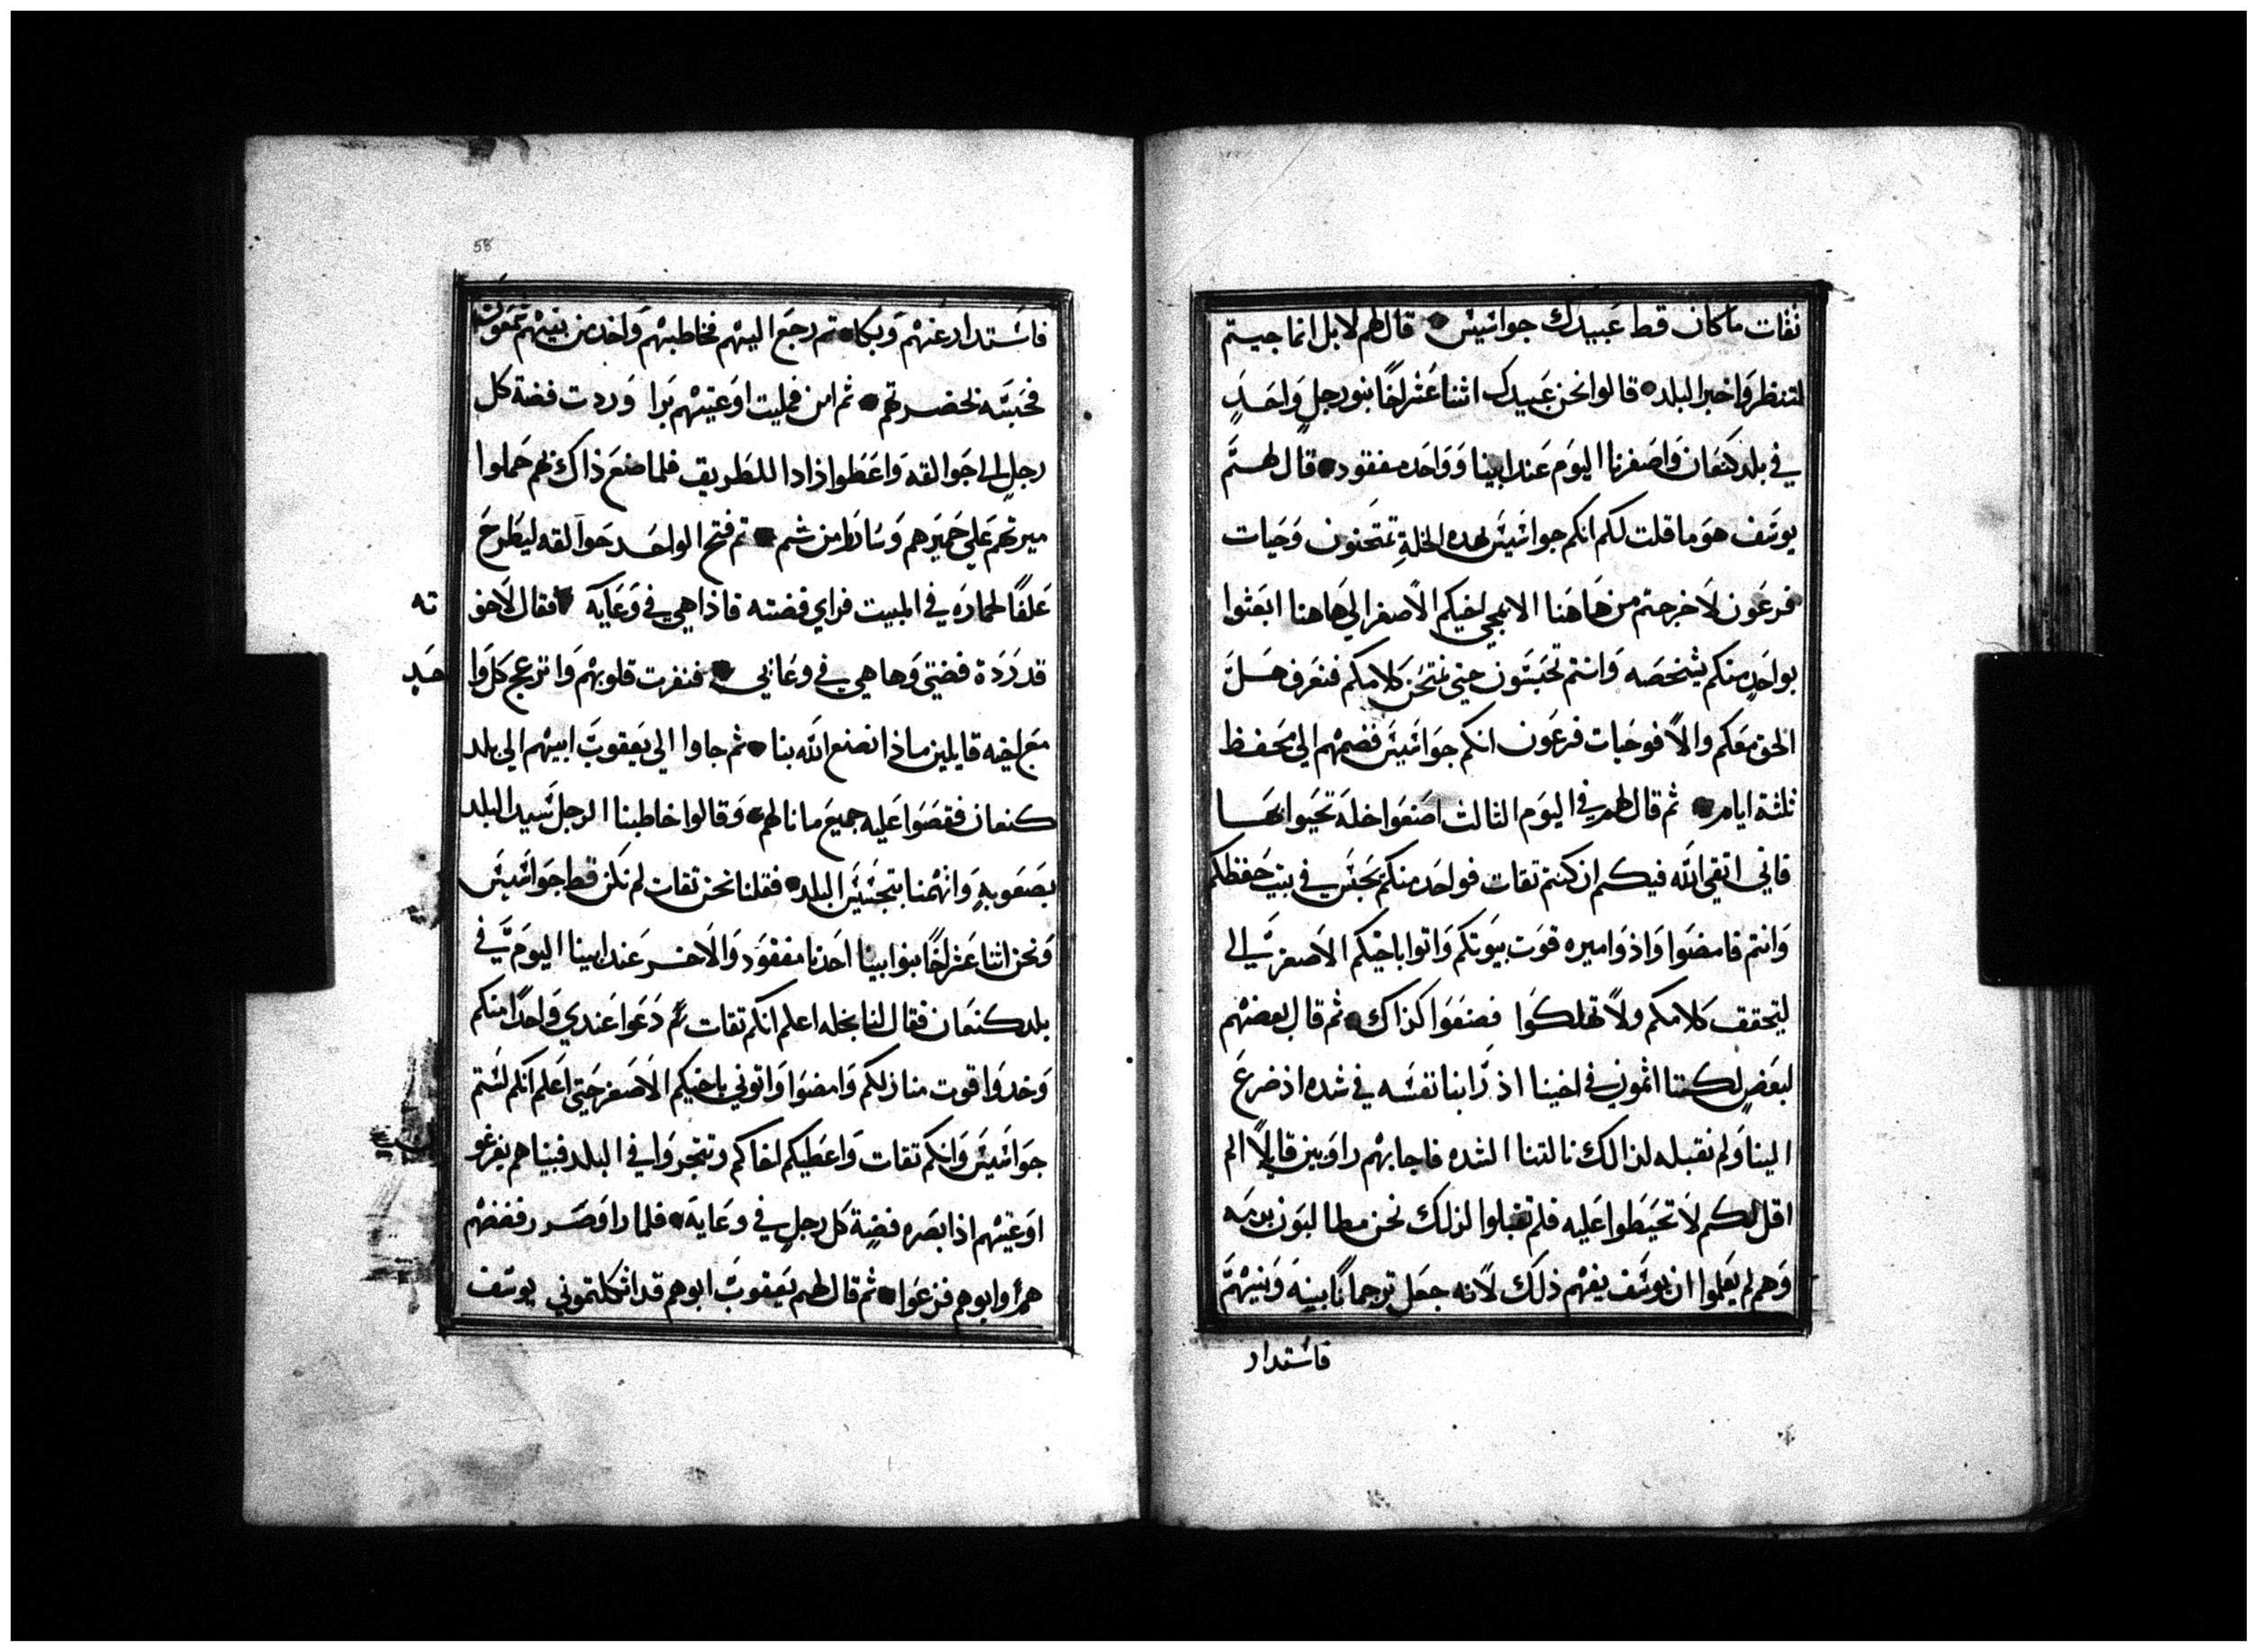 ثقات ما كان قط عبيدك جواسيس قال لهم لا بل انما جيتم
لتنظروا خبر البلد قالوا نحن عبيدك اثنا عشر اخًا بنو رجلٍ واحدٍ
في بلد كنعان واصغرنا اليوم عند ابينا وواحده مفقود قال لهم
يوسف هو ما قلت لكم انكم جواسيس بهده الخلةِ تمتحنون وحيات
فرعون لا خرجتم من هاهنا الا بمجي اخيكم الاصغر الي هاهنا ابعثوا
بواحدٍ منكم يشخصه وانتم تحبسون حتي نمتحن كلامكم فنعرف هل
الحق معكم والاً فوحيات فرعون انكم جواسيس فضمهم الي محفظ
ثلثة ايام ثم قال لهم في اليوم الثالث اصنعوا خلة تحيوا بها
فاني اتقي الله فيكم ان كنتم تقات فواحد منكم يحبس في بيت حفظكم
وانتم فامضوا واذوا ميره قوت بيوتكم واتوا باخيكم الاصغر الي
ليتحقق كلامكم ولا تهلكوا فصنعوا كذاك ثم قال بعضهم
لبعضٍ لكننا اثمون في اخينا اذ راينا نفسه في شده اذ ضرع
الينا ولم نقبله لذالك نالتنا الشده فاجابهم راوبين قايلاً الم
اقل لكم لا تخيطوا عليه فلم تقبلوا لذلك نحن مطالبون بدمه
وهم لم يعلموا ان يوسف يفهم ذلك لانه جعل ترجماناً بينه وبينهم
فاستدار
58
فاستدار عنهم وبكا ثم رجع اليهم فخاطبهم واخد من بينهم شمعون
فحبسه بحضرتهم ثم امر فمليت اوعيتهم برا وردت فضة كل
رجلٍ الي جوالقه واعطوا ذادا للطريق فلما صنع ذاك بهم حملوا
ميرتهم علي حميرهم وساروا من ثم ثم فتح الواحد جوالقه ليطرح
علفاً لحماره في المبيت فراي فضته فاذا هي في وعايه فقال لاخو
ته
قد ردة فضتي وها هي في وعايي فنفرت قلوبهم وانزعج كل وا
حدٍ
مع اخيه قايلين ماذا نصنع الله بنا ثم جاوا الي يعقوب ابيهم الي بلد
كنعان فقصوا عليه جميع ما نالهم وقالوا خاطبنا الرجل سيد البلد
بصعوبةٍ واتهمنا بتجسيس البلد فقلنا نحن تقات لم نكن قط جواسيس
ونحن اثنا عشر اخًا بنو ابينا احدنا مفقود والاخر عند ابينا اليوم في
بلد كنعان فقال لنا بخله اعلم انكم تقات ثم دعوا عندي واحدًا منكم
وخدوا قوت منازلكم وامضوا واتوني باخيكم الاصغر حتي اعلم انكم لستم
جواسيس وانكم تقات واعطيكم اخاكم وتتجروا في البلد فبينا هم يفرغو
اوعيتهم اذا بصره فضةٍ كل رجلٍ في وعايه فلما راو صرر فضضهم
هم وابوهم فزعوا ثم قال لهم يعقوب ابوهم قد اثكلتموني يوسف